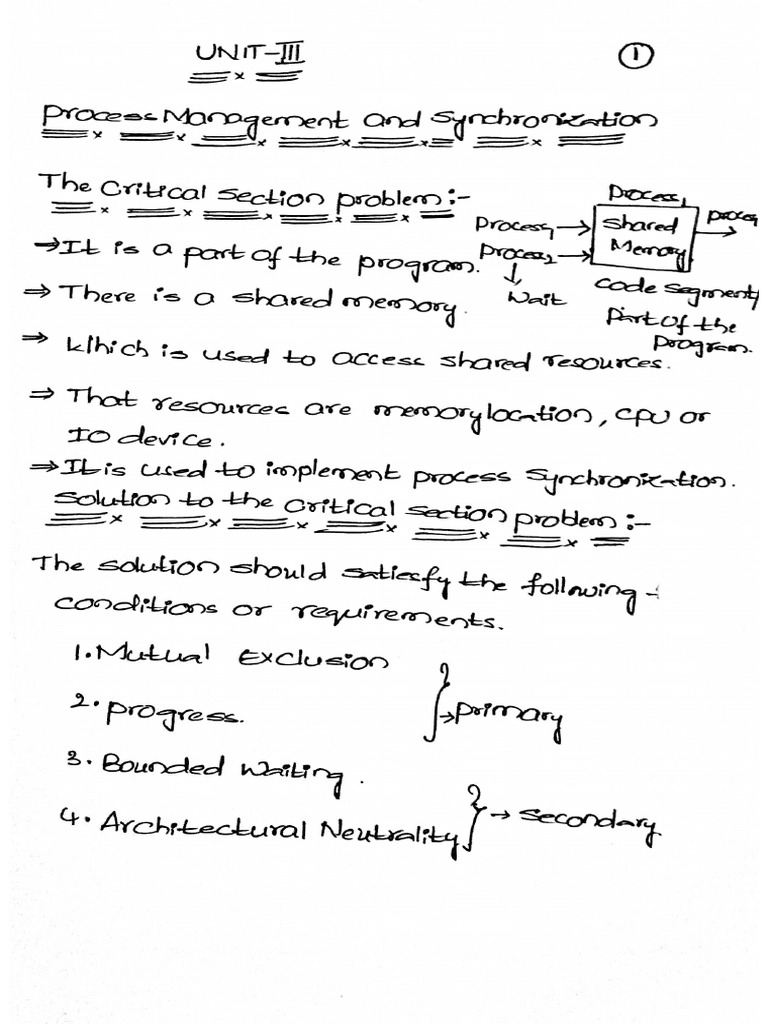 UNIT-III
1
Process Management and Synchronization
The Critical Section problem:-
→ It is a part of the program.
⇒ There is a shared memory.
Process1
Process1 → Shared → process
Process2 → Memory
↓
Wait
Code Segment/
Part of the
Program.
⇒ Which is used to access shared resources.
⇒ That resources are memory location, CPU or
IO device.
⇒ It is used to implement process synchronization.
Solution to the Critical Section problem:-
The solution should satisfy the following -
conditions or requirements.
1. Mutual Exclusion
2. Progress.
→ Primary
3. Bounded Waiting.
4. Architectural Neutrality
→ Secondary